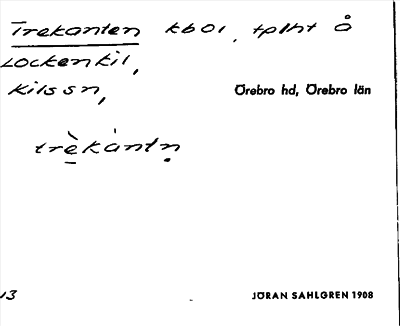 Trekanten kbol, tplht å
Lockenkil,
Kilssn,
Örebro hd, Örebro län
trè̱kàntṇ
13
JÖRAN SAHLGREN 1908